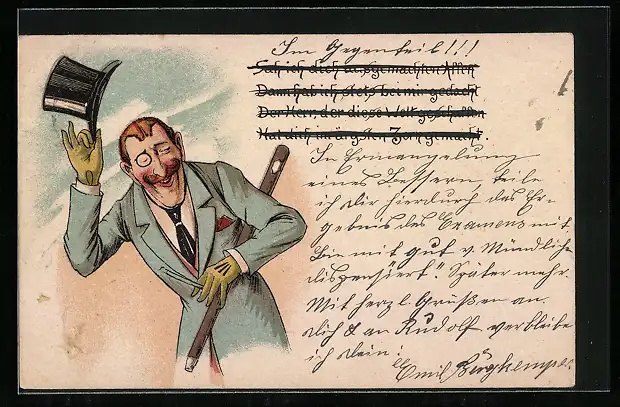 Im Gegenteil!!!
Sah ich dich ausgemachten Affen
Dann hab ich stets bei mir gedacht
Der Herr, der diese Welt geschaffen
Hat dich im ärgsten Zorn gemacht.
In Ermangelung
eines Bessern, teile
ich dir hierdurch das Er-
gebnis des Examens mit.
Bin mit "gut v. Mündlichen
dispensiert". Später mehr.
Mit herzl. Grüßen an
dich & an Rudolf verbleibe
ich dein:
Emil